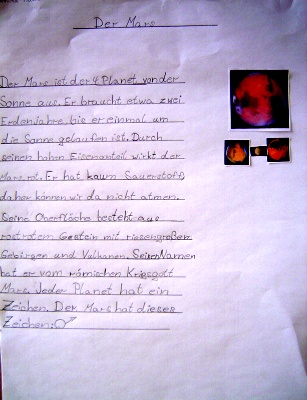 Der Mars
Der Mars ist der 4. Planet von der
Sonne aus. Er braucht etwa zwei
Erdenjahre, bis er einmal um
die Sonne gelaufen ist. Durch
seinen hohen Eisenanteil wirkt der
Mars rot. Er hat kaum Sauerstoff,
daher können wir da nicht atmen.
Seine Oberfläche besteht aus
rostrotem Gestein mit riesengroßen
Gebirgen und Vulkanen. Seinen Namen
hat er vom römischen Kriegsgott
Mars. Jeder Planet hat ein
Zeichen. Der Mars hat dieses
Zeichen: ♂